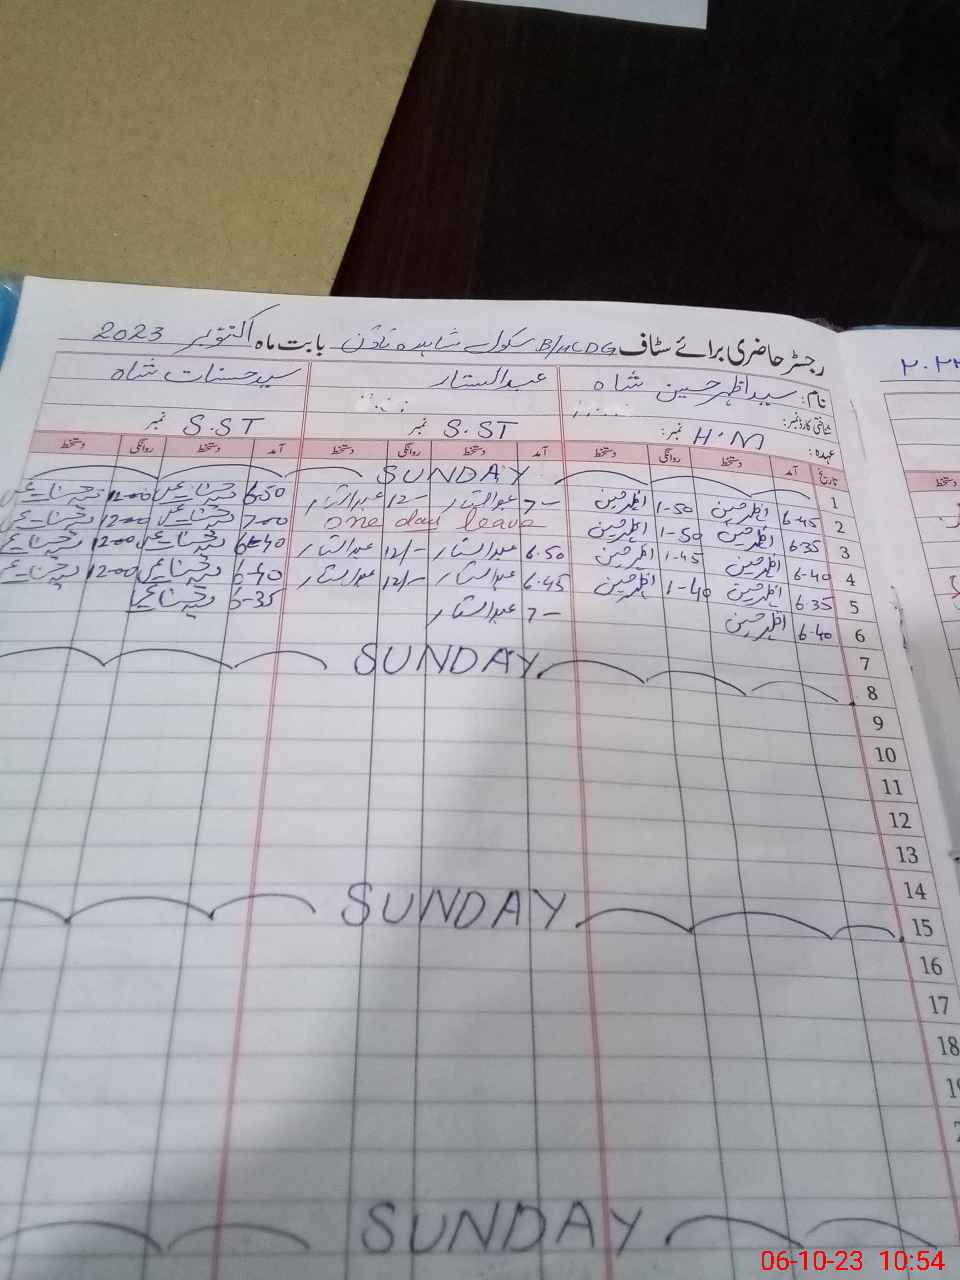 رجسٹر حاضری برائے سٹاف B/MCDG سکول شاہدہ ٹاؤن بابت ماہ اکتوبر 2023
نام: سید اظہر حسین شاہ عبدالستار سید حسنات شاہ
شناختی کارڈ نمبر:
عہدہ: H.M نمبر: S.ST نمبر S.ST نمبر
تاریخ آمد دستخط روانگی دستخط آمد دستخط روانگی دستخط آمد دستخط روانگی دستخط
1 SUNDAY
2 6-45 اظہر حسین 1-50 اظہر حسین 7- عبدالستار 12- عبدالستار 6-50 12-00
3 6-35 اظہر حسین 1-50 اظہر حسین one day leave 7-00 12-00
4 6-40 اظہر حسین 1-45 اظہر حسین 6-50 عبدالستار 12/- عبدالستار 6-40 12-00
5 6-35 اظہر حسین 1-40 اظہر حسین 6-45 عبدالستار 12/- عبدالستار 6-40 12-00
6 6-40 اظہر حسین 7- عبدالستار 6-35
7
8 SUNDAY
9
10
11
12
13
14
15 SUNDAY
16
17
18
SUNDAY
دستخط
06-10-23 10:54